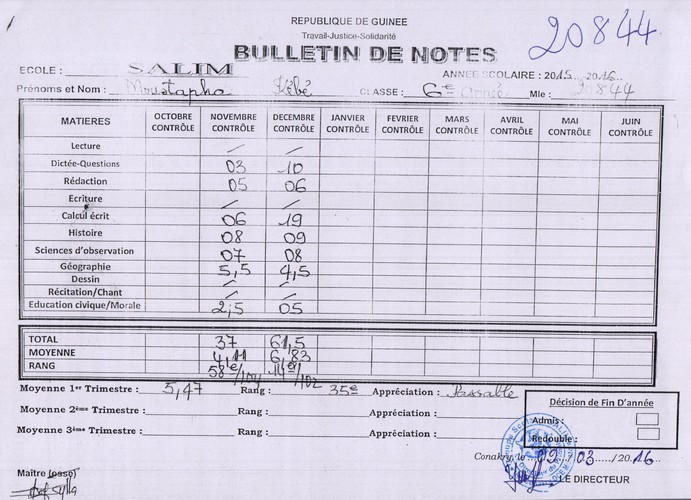 REPUBLIQUE DE GUINEE
Travail-Justice-Solidarité
20844
BULLETIN DE NOTES
ECOLE : SALIM ANNEE SCOLAIRE : 2015 2016
Prénoms et Nom : Moustapha Kébé CLASSE : 6e année Mle : 20844
MATIERES OCTOBRE CONTRÔLE NOVEMBRE CONTRÔLE DECEMBRE CONTRÔLE JANVIER CONTRÔLE FEVRIER CONTRÔLE MARS CONTRÔLE AVRIL CONTRÔLE MAI CONTRÔLE JUIN CONTRÔLE
Lecture / /
Dictée-Questions 03 10
Rédaction 05 06
Ecriture / /
Calcul écrit 06 19
Histoire 08 09
Sciences d'observation 07 08
Géographie 5,5 4,5
Dessin / /
Récitation/Chant / /
Education civique/Morale 2,5 05
TOTAL 37 61,5
MOYENNE 4,11 6,83
RANG 58e/104 14e/102
Moyenne 1er Trimestre : 5,47 Rang : 35e Appréciation : Passable
Moyenne 2ème Trimestre : Rang : Appréciation :
Moyenne 3ème Trimestre : Rang : Appréciation :
Décision de Fin D'année
Admis :
Redouble :
Conakry, le 09/03/2016
Maître (esse) LE DIRECTEUR